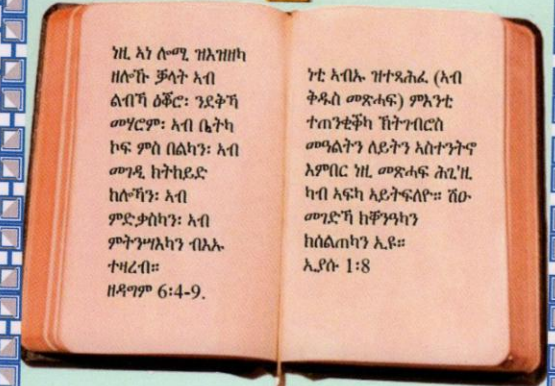 ነዚ ኣነ ሎሚ ዝእዝዘካ
ዘሎኹ ቓላት ኣብ
ልብኻ ዕቖሮ፡ ንደቅኻ
መሃሮም፡ ኣብ ቤትካ
ኮፍ ምስ በልካን፡ ኣብ
መገዲ ክትከይድ
ከሎኻን፡ ኣብ
ምድቃስካን፡ ኣብ
ምትንሣእካን ብእኡ
ተዛረብ።
ዘዳግም 6፡4-9.
ነቲ ኣብኡ ዝተጻሕፈ (ኣብ
ቅዱስ መጽሓፍ) ምእንቲ
ተጠንቂቐካ ኽትገብሮስ
መዓልትን ለይትን ኣስተንትኖ
እምበር ነዚ መጽሓፍ ሕጊ'ዚ
ካብ ኣፍካ ኣይትፍለዮ። ሽዑ
መገድኻ ክቐንዓካን
ክሰልጠካን ኢዩ።
ኢያሱ 1፡8